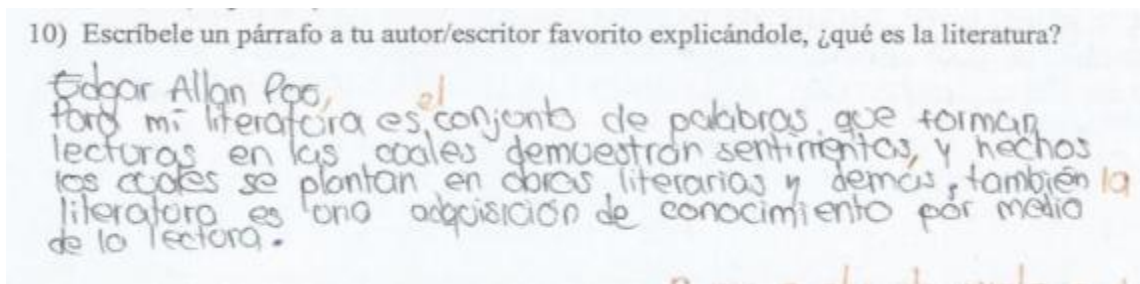 10) Escríbele un párrafo a tu autor/escritor favorito explicándole, ¿qué es la literatura?
Edgar Allan Poe,
el
Para mi literatura es conjunto de palabras que forman
lecturas en las cuales demuestran sentimientos, y hechos
los cuales se plantan en obras literarias y demás, también la
literatura es una adquisición de conocimiento por medio
de la lectura.